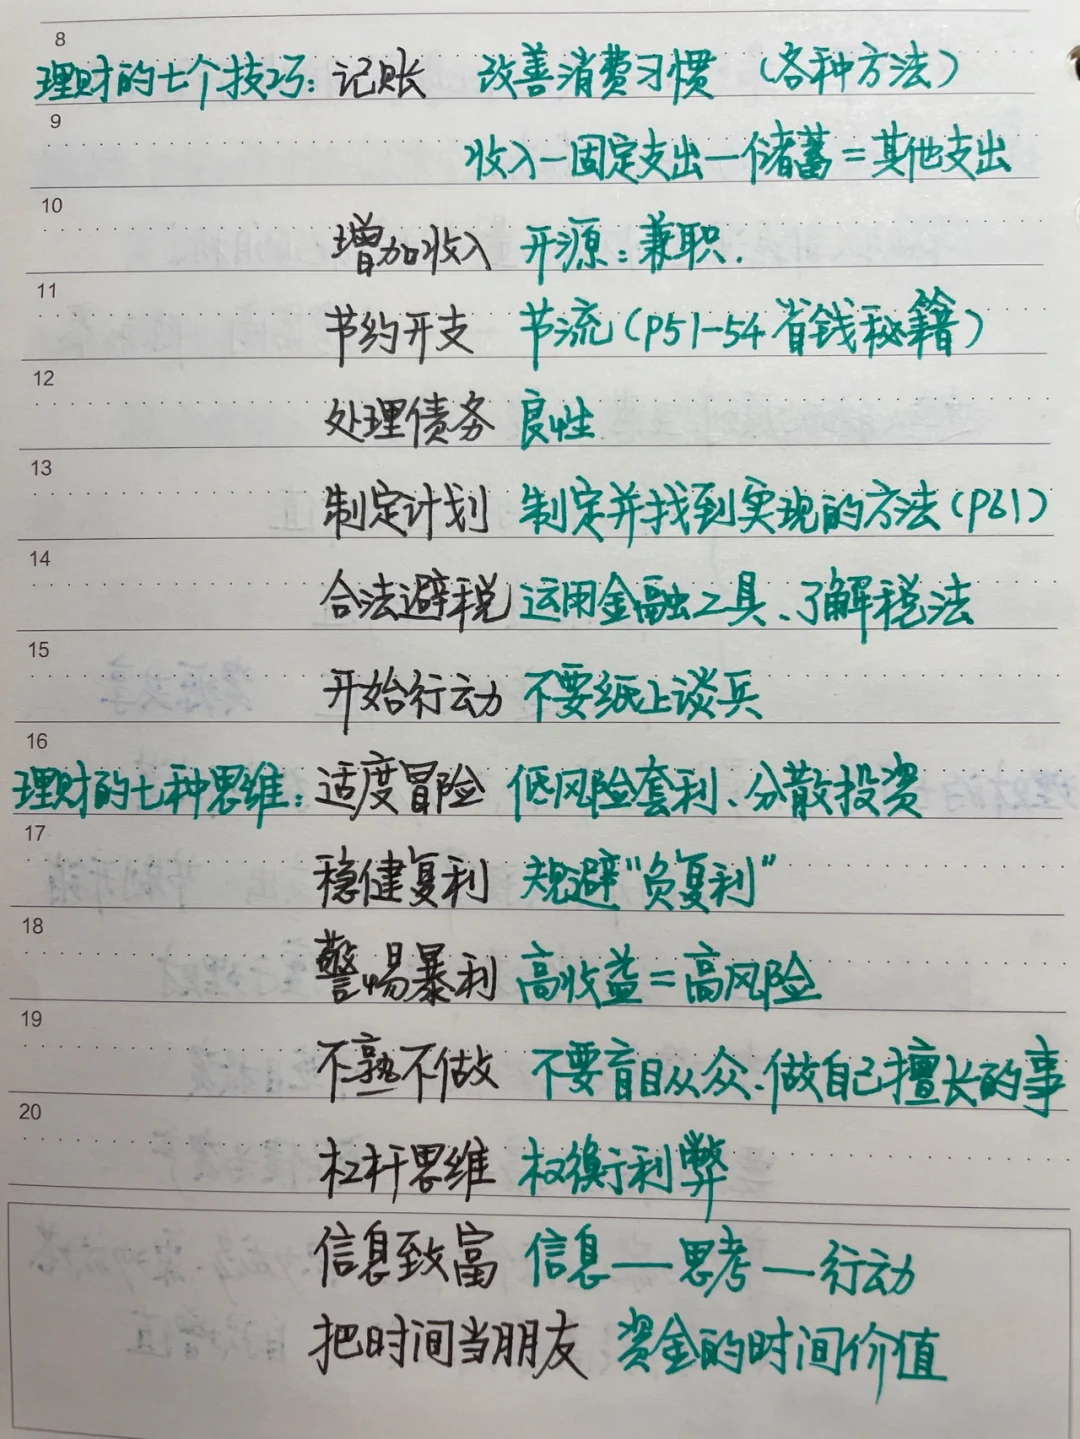 8
理财的七个技巧：记账 改善消费习惯（各种方法）
9
收入－固定支出－储蓄＝其他支出
10
增加收入 开源：兼职.
11
节约开支 节流（P51-54省钱秘籍）
12
处理债务 良性
13
制定计划 制定并找到实现的方法（P61）
14
合法避税 运用金融工具、了解税法
15
开始行动 不要纸上谈兵
16
理财的七种思维：适度冒险 低风险套利、分散投资
17
稳健复利 规避“负复利”
18
警惕暴利 高收益＝高风险
19
不熟不做 不要盲目从众、做自己擅长的事
20
杠杆思维 权衡利弊
信息致富 信息——思考——行动
把时间当朋友 资金的时间价值